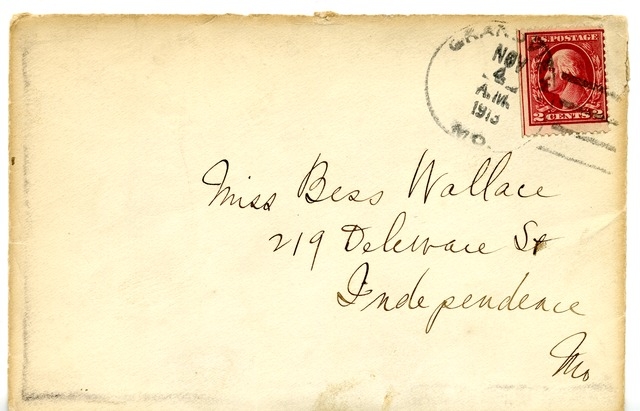 NOV
4
A.M.
1913
MO.
U.S. POSTAGE
2 CENTS 2
Miss Bess Wallace
219 Deleware St
Independence
Mo